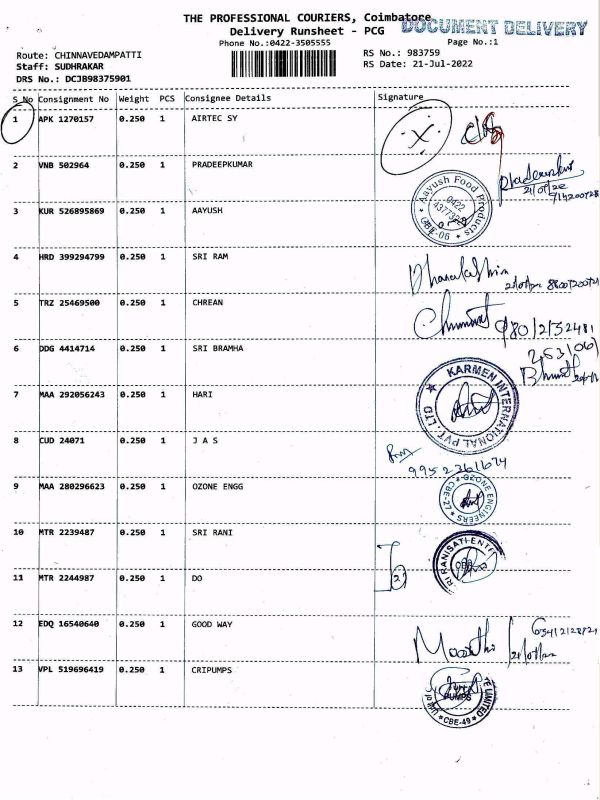 THE PROFESSIONAL COURIERS, Coimbatore
DOCUMENT DELIVERY
Delivery Runsheet - PCG
Phone No.:0422-3505555
Page No.:1
Route: CHINNAVEDAMPATTI
RS No.: 983759
Staff: SUDHRAKAR
RS Date: 21-Jul-2022
DRS No.: DCJB98375901
S No Consignment No Weight PCS Consignee Details Signature
1 APK 1270157 0.250 1 AIRTEC SY
2 VNB 502964 0.250 1 PRADEEPKUMAR
Aayush Food Products
0422
CBE-06
3 KUR 526895869 0.250 1 AAYUSH
4 HRD 399294799 0.250 1 SRI RAM
5 TRZ 25469500 0.250 1 CHREAN
6 DDG 4414714 0.250 1 SRI BRAMHA
KARMEN INTERNATIONAL PVT. LTD
7 MAA 292056243 0.250 1 HARI
8 CUD 24071 0.250 1 J A S
9 MAA 280296623 0.250 1 OZONE ENGG
OZONE ENGINEERS
10 MTR 2239487 0.250 1 SRI RANI
11 MTR 2244987 0.250 1 DO
12 EDQ 16540640 0.250 1 GOOD WAY
13 VPL 519696419 0.250 1 CRIPUMPS
PUMPS
CBE-49